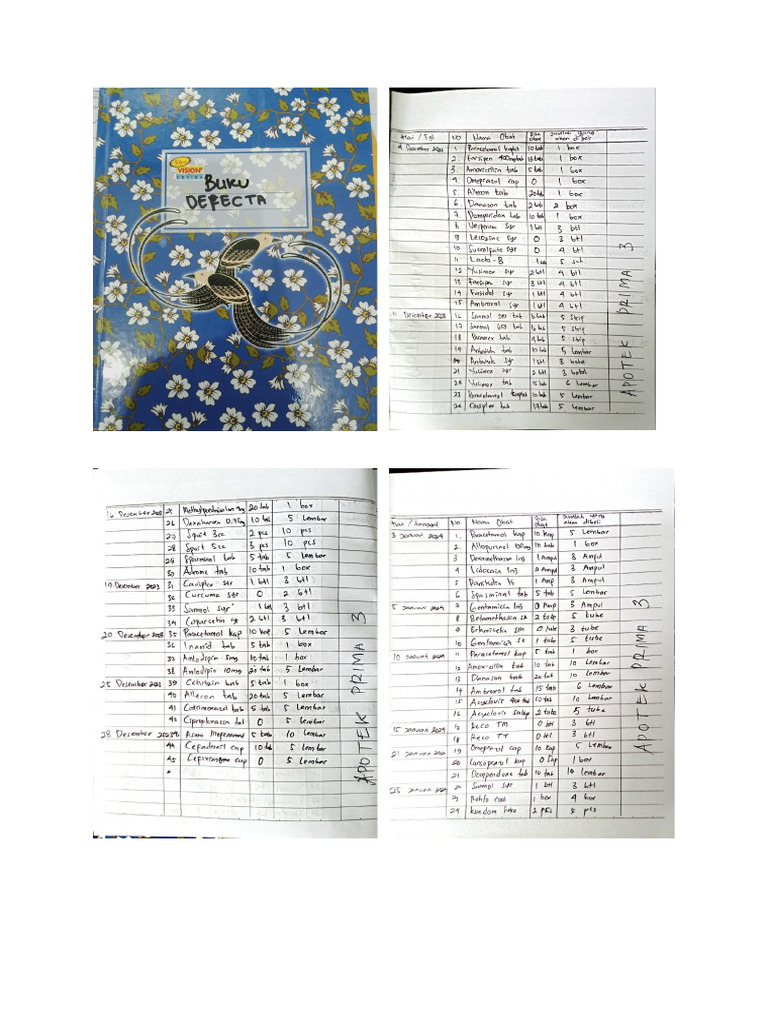 VISION
DESIGN
BUKU
DEFECTA
Hari / Tgl No Nama Obat Sisa Obat Jumlah yang akan di beli
4 Desember 2023 1. Paracetamol kaplet 10 tab 1 box
2. Farsifen 400mg tab 13 tab 1 box
3. Amoxicillin tab 5 tab 1 box
4. Omeprazol cap 0 1 box
5. Alleron tab 20 tab 1 box
6 Danason tab 2 tab 2 box
7. Domperidon tab 10 tab 1 box
8 Vesperum syr 1 btl 3 btl
9 Lerozinc syr 0 3 btl
10 Sucralfate syr 0 4 btl
11 Lacto - B 5
12 Yusimox syr 2 btl 4 btl
13 Farsifen syr 3 btl 4 btl
14 Farsidol syr 1 btl 4 btl
15 Ambroxol syr 1 btl 4 btl
11 Desember 2023 16 Sanmol tab 5 strip
17 Sanmol tab 5 strip
18 Paramex tab 5 strip
19 tab 5 lembar
20 syr 1 btl 3 botol
21 Yusimox syr 2 btl 3 botol
22 Yusimox tab 15 tab 6 lembar
23 Paracetamol 10 tab 5 lembar
24 Caviplex tab 17 tab 5 lembar
APOTEK PRIMA 3
16 Desember 2023 25 Methylprednisolon 4mg 20 tab 1 box
26 Dexaharsen 0,75mg 10 tab 5 lembar
27 Spuit 3cc 2 pcs 10 pcs
28 Spuit 5cc 3 pcs 10 pcs
29 Spasminal tab 5 tab 5 lembar
30 tab 10 tab 1 box
19 Desember 2023 31 Caviplex syr 1 btl 3 btl
32 Curcuma syr 0 2 btl
33 Sanmol syr 1 btl 3 btl
34 2 btl 3 btl
20 Desember 2023 35 Paracetamol kap 10 kap 5 lembar
36 tab 5 tab 1 box
37 Amlodipin 5mg 10 tab 1 box
38 Amlodipin 10mg 20 tab 5 lembar
25 Desember 2023 39 Cetirizin tab 5 tab 1 box
40 Alleron tab 20 tab 5 lembar
41 Cotrimoxazol tab 5 tab 5 lembar
42 Ciprofloxacin tab 0 5 lembar
28 Desember 2023 43 Asam Mefenamat 5 tab 10 lembar
44 Cefadroxil cap 10 tab 5 lembar
45 cap 0 5 lembar
APOTEK PRIMA 3
Hari / Tanggal No Nama Obat Sisa Obat Jumlah yang akan dibeli
3 Januari 2024 1. Paracetamol kap 10 kap 5 lembar
2. Allopurinol 100mg 10 tab 1 box
3 Dexamethason Inj 1 Ampul 3 Ampul
4 Lidocain Inj 2 Ampul 3 Ampul
5 1 Amp 3 Ampul
6 Spasminal tab 5 tab 5 lembar
5 Januari 2024 7 Gentamicin Inj 0 Amp 3 Ampul
8 Betamethason sk 2 tube 5 tube
9 0 tube 3 tube
10 Gentamicin sk 1 tube 5 tube
10 Januari 2024 11 Paracetamol kap 5 tab 1 box
12 Amoxicillin tab 10 tab 10 lembar
13 Danason tab 20 tab 10 lembar
14 Ambroxol tab 15 tab 6 lembar
15 Acyclovir 400 tab 10 tab 5 lembar
16 Acyclovir salep 2 tube 5 tube
15 Januari 2024 17 Reco TM 0 btl 3 btl
18 Reco TT 0 btl 3 btl
21 Januari 2024 19 Omeprazol cap 10 cap 5 lembar
20 Lansoprazol cap 0 cap 1 box
21 Domperidone tab 10 tab 10 lembar
25 Januari 2024 22 Sanmol syr 1 btl 3 btl
23 Rohto cool 1 box 4 box
24 Kondom 2 pcs 5 pcs
APOTEK PRIMA 3